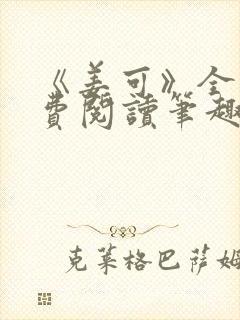 《姜可》全
費閱讀筆趣
克萊格巴薩姆